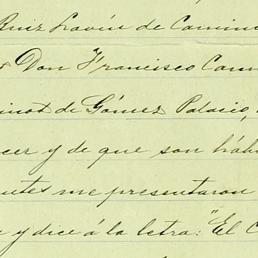 Ruiz Lavín de Camino
Don Francisco Cam
de Gómez Palacio,
cer y de que son háb
me presentaron
y dice á la letra: "El C